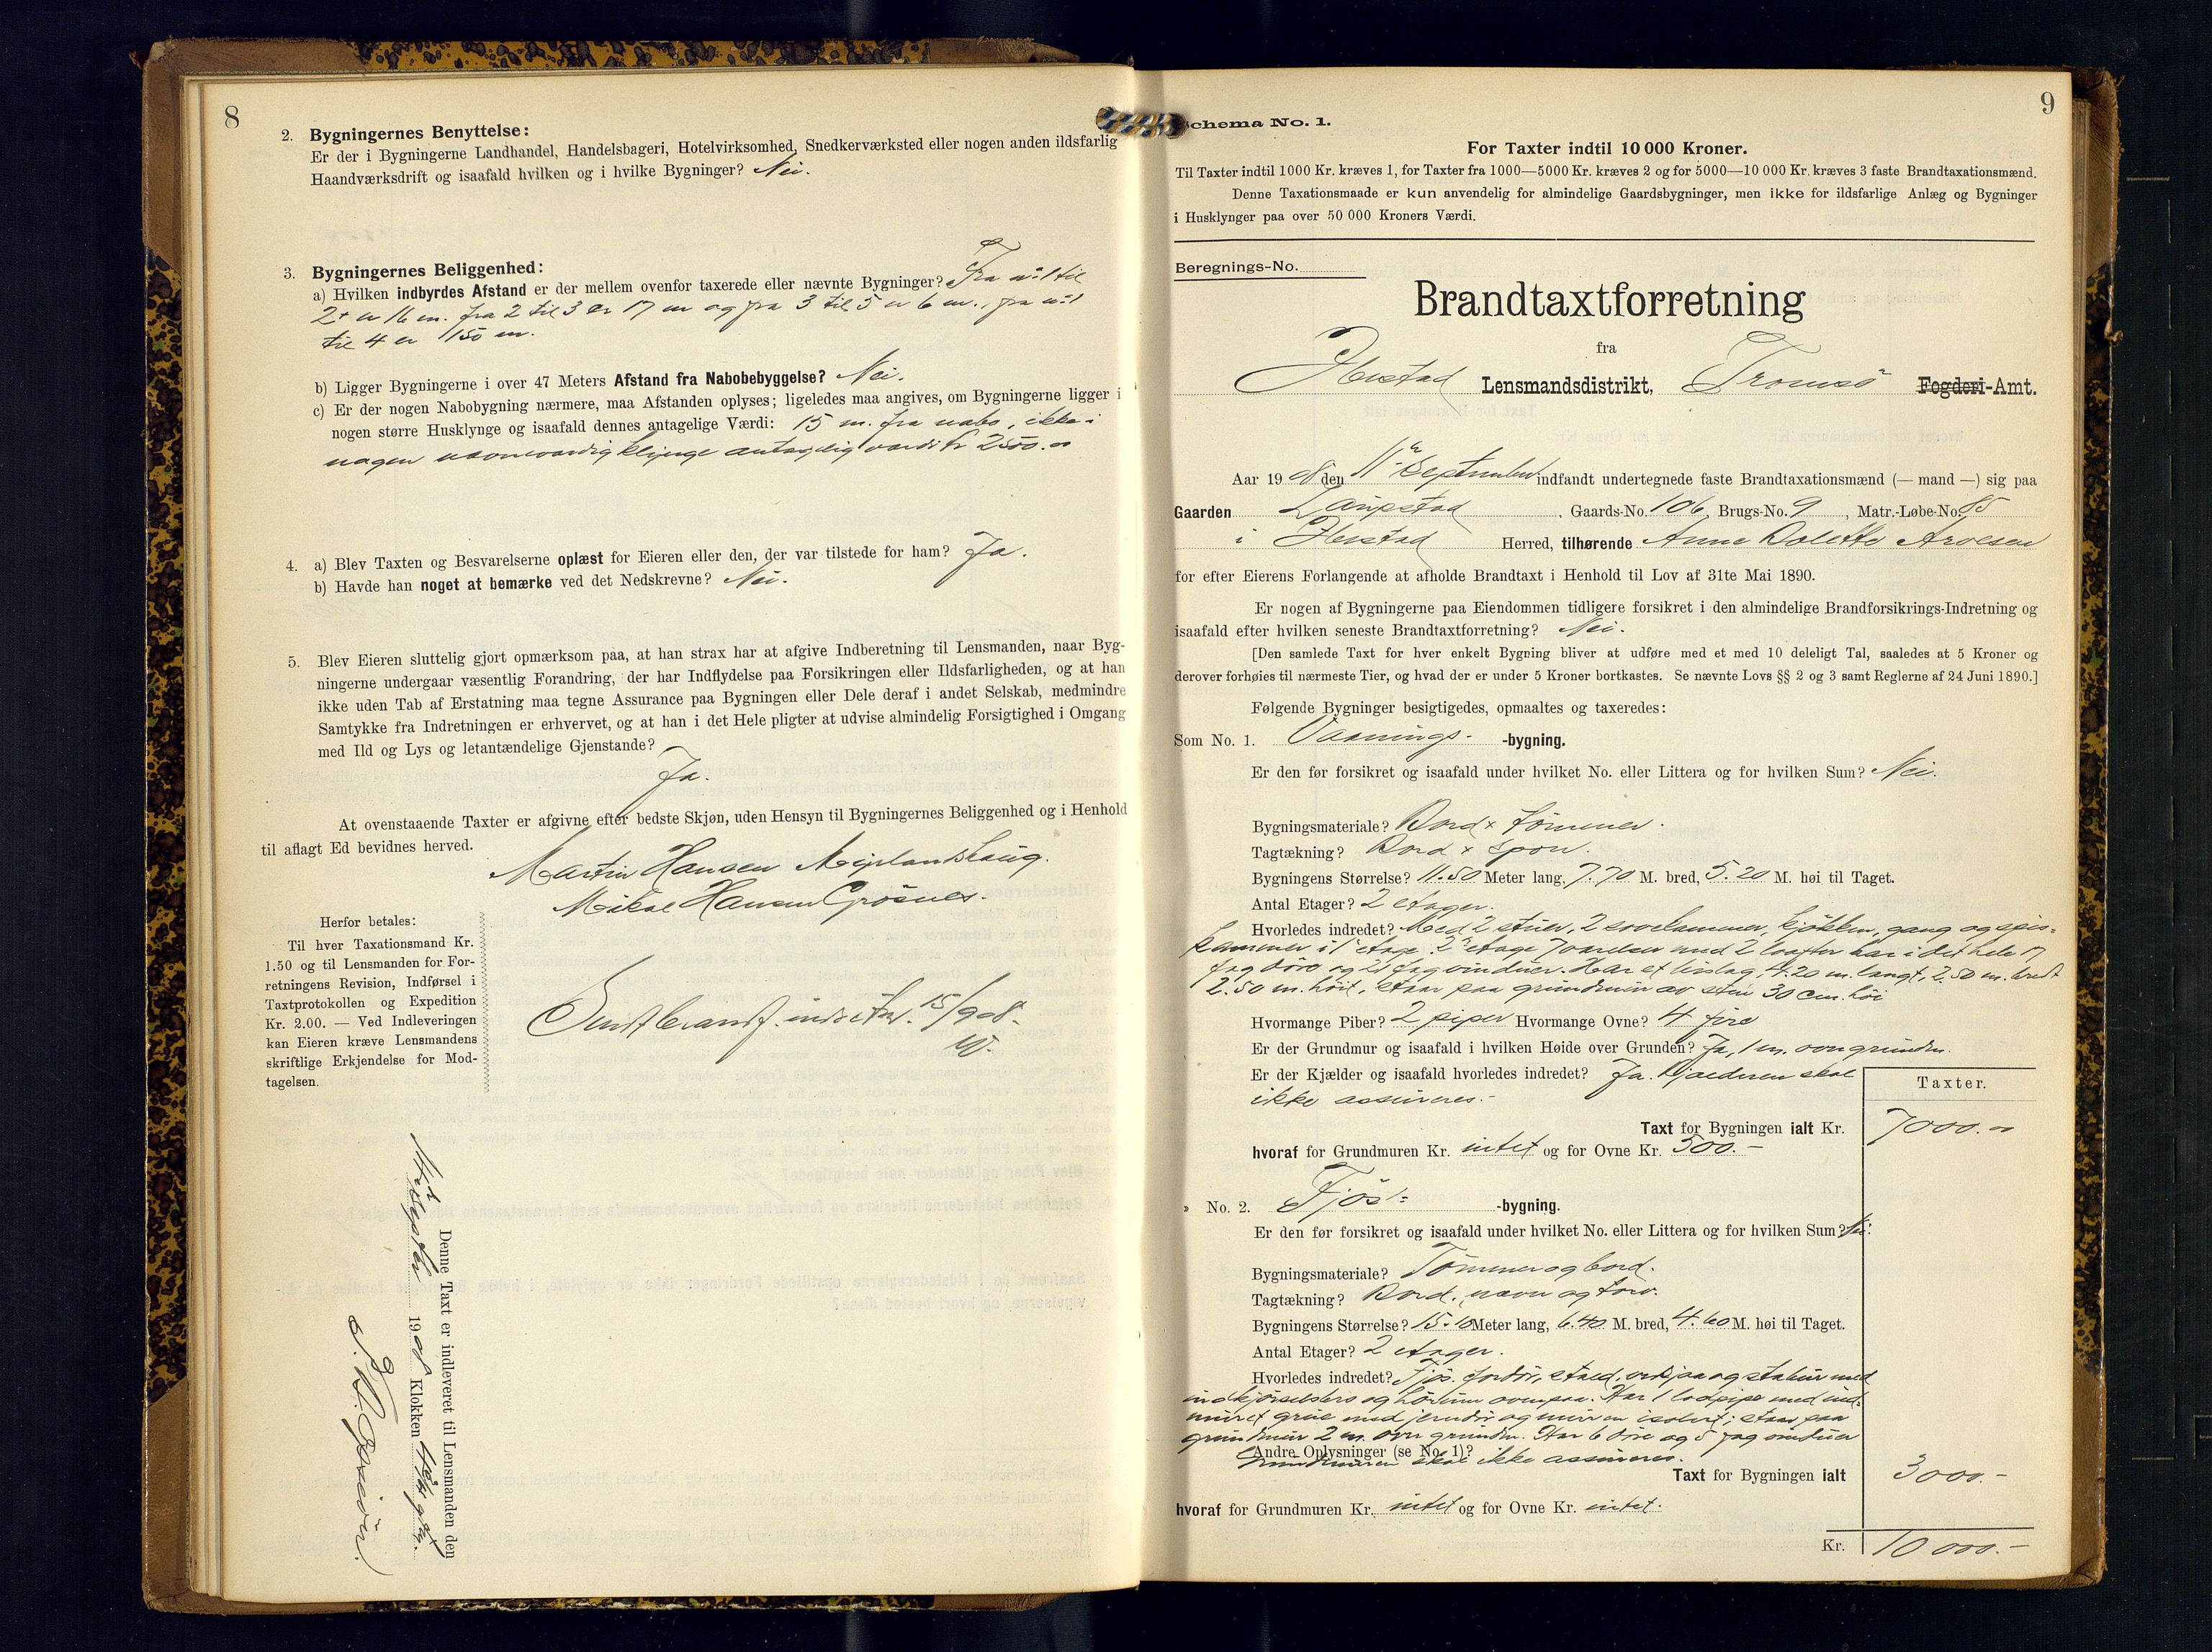 8
2. Bygningernes Benyttelse:
Er der i Bygningerne Landhandel, Handelsbageri, Hotelvirksomhed, Snedkerværksted eller nogen anden ildsfarlig
Haandværksdrift og isaafald hvilken og i hvilke Bygninger? Nei.
3. Bygningernes Beliggenhed:
a) Hvilken indbyrdes Afstand er der mellem ovenfor taxerede eller nævnte Bygninger? Fra no 1 til
2 er 16 m. fra 2 til 3 er 17 m og fra 3 til 5 er 6 m., fra no 1
til 4 er 150 m.
b) Ligger Bygningerne i over 47 Meters Afstand fra Nabobebyggelse? Nei.
c) Er der nogen Nabobygning nærmere, maa Afstanden oplyses; ligeledes maa angives, om Bygningerne ligger i
nogen større Husklynge og isaafald dennes antagelige Værdi: 15 m. fra nabo, ikke i
nogen nævneværdig klynge antagelig værdi kr 2500.00
4. a) Blev Taxten og Besvarelserne oplæst for Eieren eller den, der var tilstede for ham? Ja.
b) Havde han noget at bemærke ved det Nedskrevne? Nei.
5. Blev Eieren sluttelig gjort opmærksom paa, at han strax har at afgive Indberetning til Lensmanden, naar Byg-
ningerne undergaar væsentlig Forandring, der har Indflydelse paa Forsikringen eller Ildsfarligheden, og at han
ikke uden Tab af Erstatning maa tegne Assurance paa Bygningen eller Dele deraf i andet Selskab, medmindre
Samtykke fra Indretningen er erhvervet, og at han i det Hele pligter at udvise almindelig Forsigtighed i Omgang
med Ild og Lys og letantændelige Gjenstande?
Ja.
At ovenstaaende Taxter er afgivne efter bedste Skjøn, uden Hensyn til Bygningernes Beliggenhed og i Henhold
til aflagt Ed bevidnes herved.
Martin Hansen
Mikal Hansen Grösnes.
Herfor betales:
Til hver Taxationsmand Kr.
1.50 og til Lensmanden for For-
retningens Revision, Indførsel i
Taxtprotokollen og Expedition
Kr. 2.00. — Ved Indleveringen
kan Eieren kræve Lensmandens
skriftlige Erkjendelse for Mod-
tagelsen.
Sendt brandf. indretn. 15/9 08.
Denne Taxt er indleveret til Lensmanden den
september 1908 Klokken
9
Schema No. 1.
For Taxter indtil 10 000 Kroner.
Til Taxter indtil 1000 Kr. kræves 1, for Taxter fra 1000—5000 Kr. kræves 2 og for 5000—10 000 Kr. kræves 3 faste Brandtaxationsmænd.
Denne Taxationsmaade er kun anvendelig for almindelige Gaardsbygninger, men ikke for ildsfarlige Anlæg og Bygninger
i Husklynger paa over 50 000 Kroners Værdi.
Beregnings-No.
Brandtaxtforretning
fra
Ibestad Lensmandsdistrikt, Tromsø Fogderi-Amt.
Aar 1908 den 11te September indfandt undertegnede faste Brandtaxationsmænd (— mand —) sig paa
Gaarden Laupstad, Gaards-No. 106, Brugs-No. 9, Matr.-Løbe-No. 85
i Ibestad Herred, tilhørende Anne Dolette Arolsen
for efter Eierens Forlangende at afholde Brandtaxt i Henhold til Lov af 31te Mai 1890.
Er nogen af Bygningerne paa Eiendommen tidligere forsikret i den almindelige Brandforsikrings-Indretning og
isaafald efter hvilken seneste Brandtaxtforretning? Nei.
[Den samlede Taxt for hver enkelt Bygning bliver at udføre med et med 10 deleligt Tal, saaledes at 5 Kroner og
derover forhøies til nærmeste Tier, og hvad der er under 5 Kroner bortkastes. Se nævnte Lovs §§ 2 og 3 samt Reglerne af 24 Juni 1890.]
Følgende Bygninger besigtigedes, opmaaltes og taxeredes:
Som No. 1. Vaanings- -bygning.
Er den før forsikret og isaafald under hvilket No. eller Littera og for hvilken Sum? Nei.
Bygningsmateriale? Bord + tömmer.
Tagtækning? Bord + spon.
Bygningens Størrelse? 11.50 Meter lang, 7.70 M. bred, 5.20 M. høi til Taget.
Antal Etager? 2 etager.
Hvorledes indredet? Med 2 stuer, 2 sovekammer, kjökken, gang og spis-
kammer i 1ste etage. 2den etage 7 værelser med 2 har i det hele 17
fag döre og 21 fag vinduer. Har et bislag, 4.20 m. langt, 2.50 m. bredt
2.50 m. höit, staar paa grundmur av sten 30 cm. höi
Hvormange Piber? 2 piper Hvormange Ovne? 4 fire
Er der Grundmur og isaafald i hvilken Høide over Grunden? Ja, 1 m. over grunden.
Er der Kjælder og isaafald hvorledes indredet? Ja. Kjælderen skal
ikke assureres.-
Taxter.
Taxt for Bygningen ialt Kr. 7000.00
hvoraf for Grundmuren Kr. intet og for Ovne Kr. 500.-
» No. 2. Fjös- -bygning.
Er den før forsikret og isaafald under hvilket No. eller Littera og for hvilken Sum? Nei.
Bygningsmateriale? Tömmer og bord.
Tagtækning? Bord, næver og torv.
Bygningens Størrelse? 15.10 Meter lang, 6.40 M. bred, 4.60 M. høi til Taget.
Antal Etager? 2 etager.
Hvorledes indredet? Fjös, stald, og med
indkjörselsbro og ovenpaa. Har 1 pipe med ind-
muret grue med jerndör og isolert; staar paa
grundmur 2 m. over grunden. Har 6 döre og 5 fag vinduer
Andre Oplysninger (se No. 1)?
Grundmuren skal ikke assureres.
Taxt for Bygningen ialt 3000.-
hvoraf for Grundmuren Kr. intet og for Ovne Kr. intet.
Kr. 10 000.-